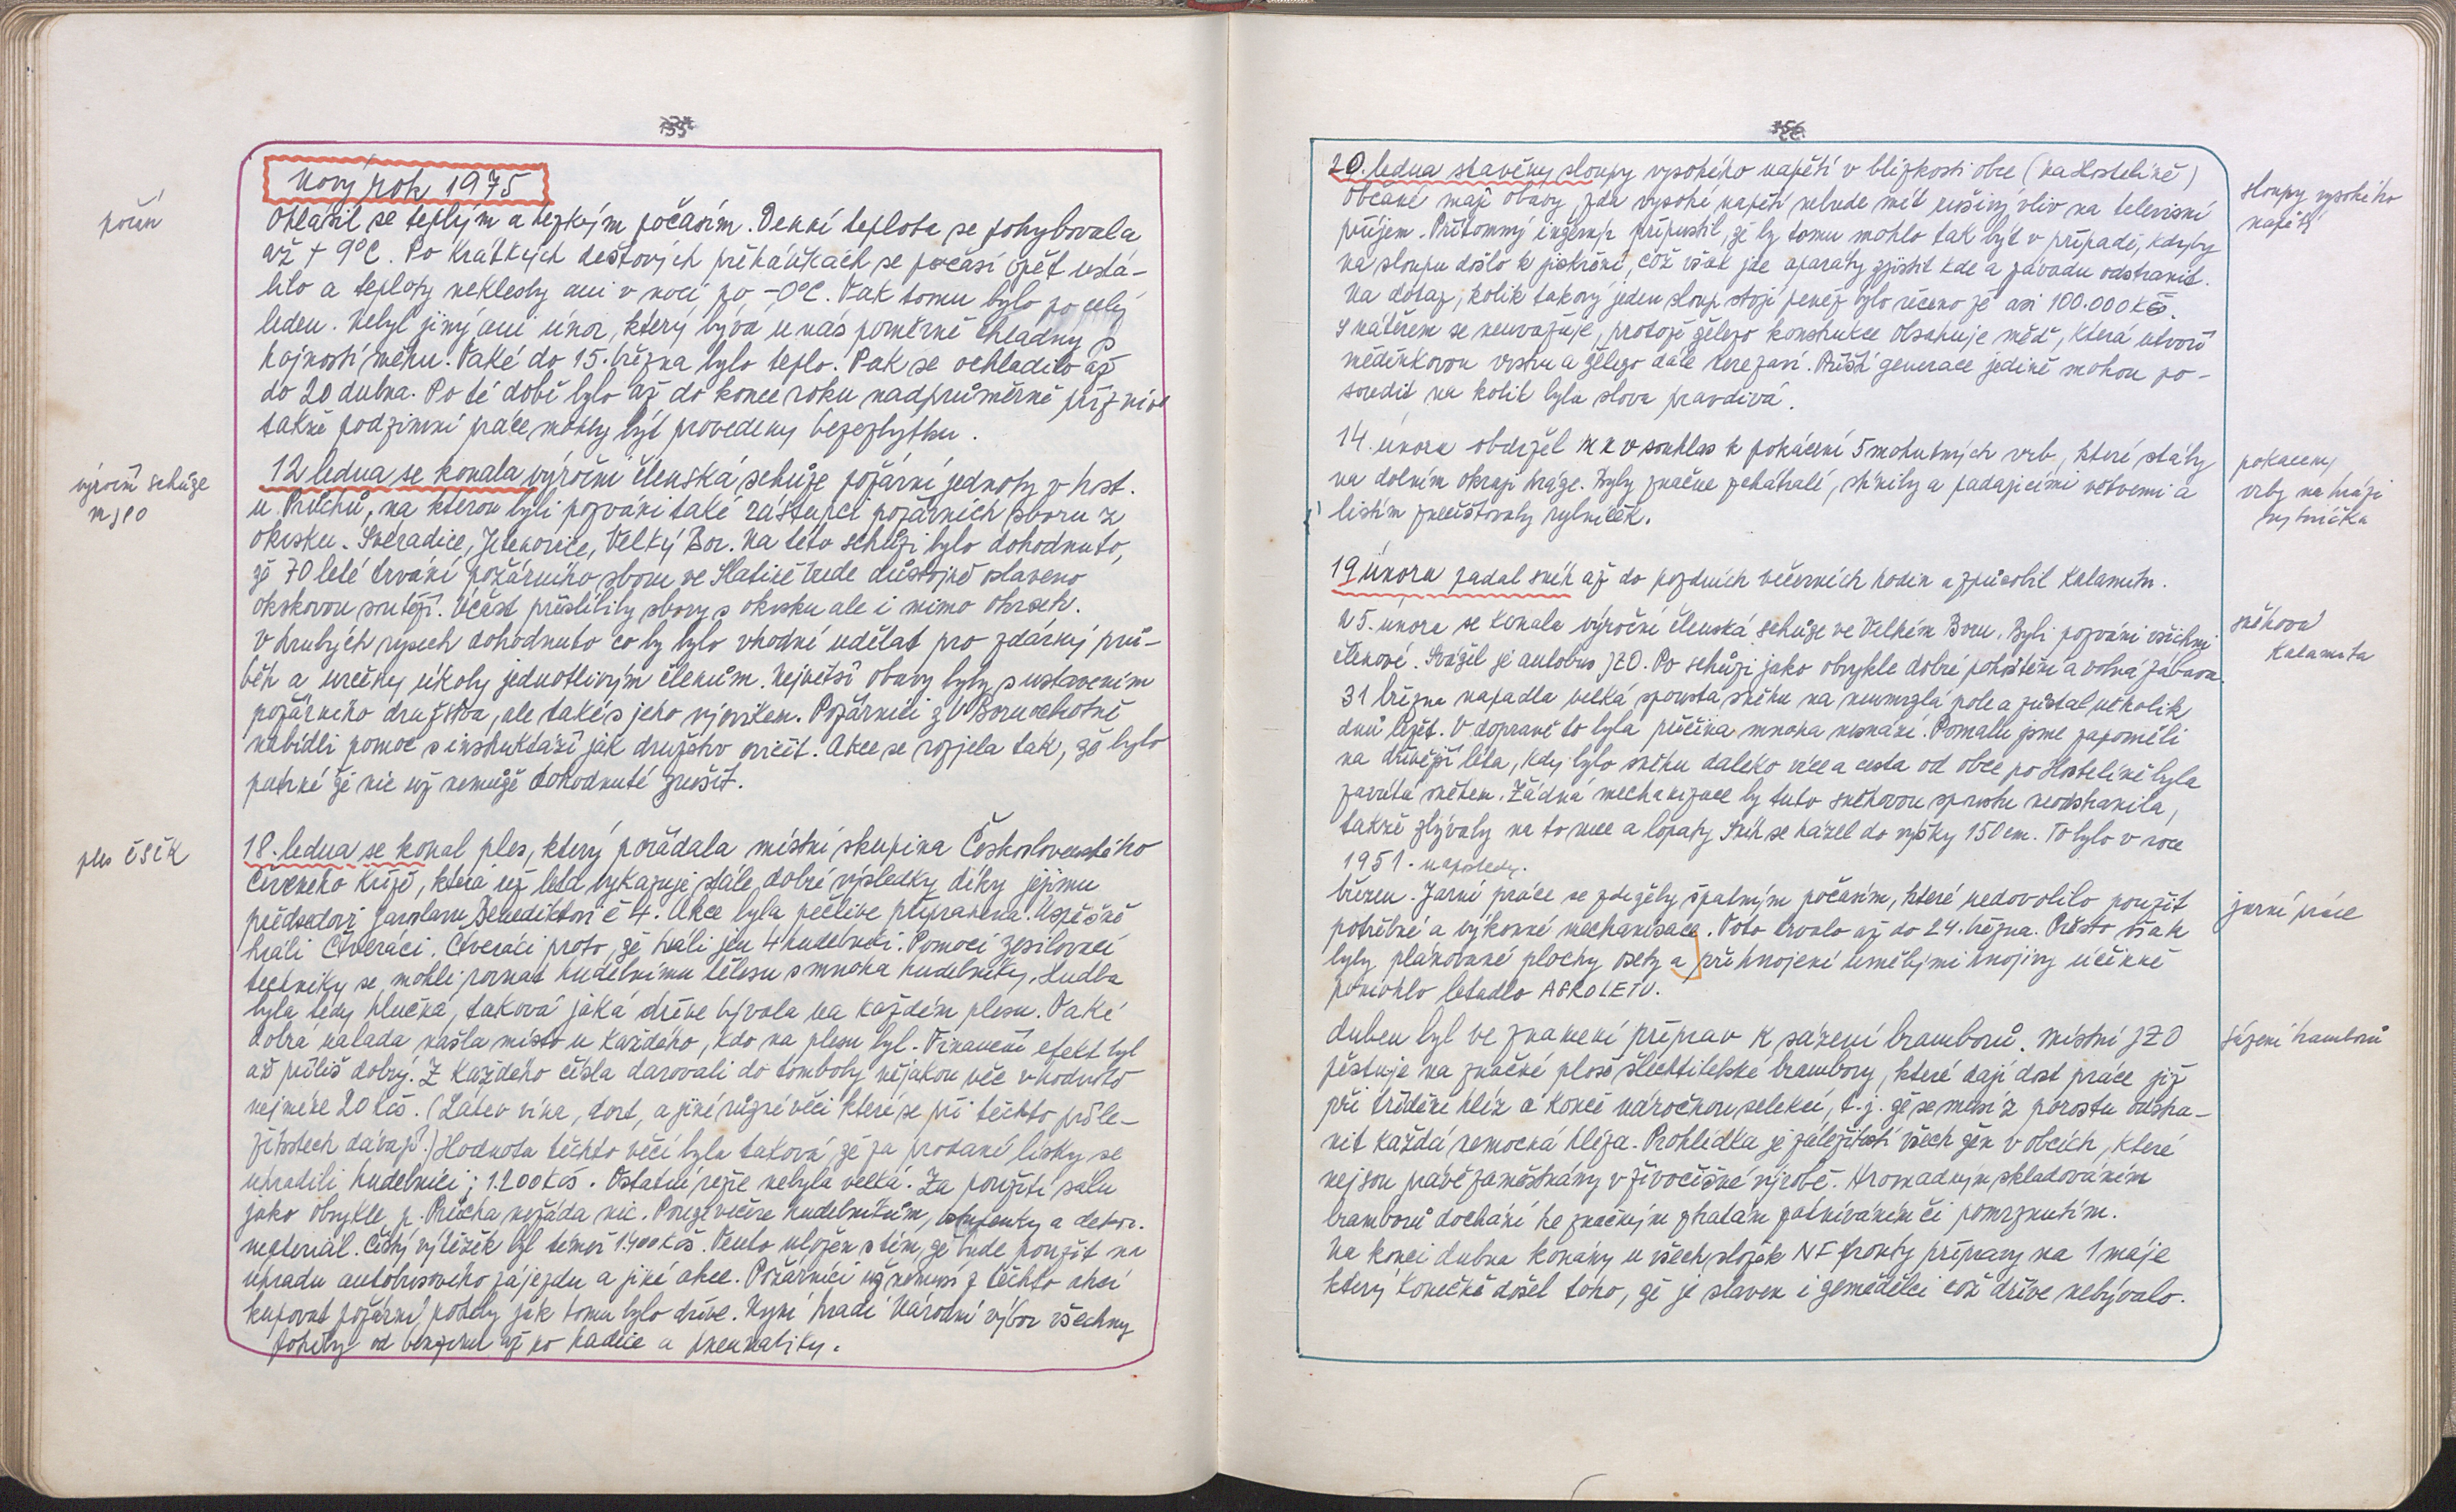 Nový rok 1975
počasí
Ohlásil se teplým a hezkým počasím. Denní teplota se pohybovala
až + 9°C. Po krátkých dešťových přeháňkách se počasí opět ustá-
lilo a teploty neklesly ani v noci po -0°C. Tak tomu bylo po celý
leden. Nebyl jiný ani únor, který bývá u nás poměrně chladný s
hojností sněhu. Také do 15. března bylo teplo. Pak se ochladilo až
do 20 dubna. Po té době bylo až do konce roku nadprůměrně příznivé
takže podzimní práce mohly být provedeny bezezbytku.
výroční schůze
MJPO
12 ledna se konala výroční členská schůze požární jednoty v host.
u Průchů, na kterou byli pozváni také zástupci požárních sborů z
okrsku. Svéradice, Jetenovice, Velký Bor. Na této schůzi bylo dohodnuto,
že 70 leté trvání požárního sboru ve Slatině bude důstojně oslaveno
okrskovou soutěží. Účast přislíbily sbory s okrsku ale i mimo okrsek.
V hrubých rysech dohodnuto co by bylo vhodné udělat pro zdárný prů-
běh a určeny úkoly jednotlivým členům. Největší obavy byly s ustavením
požárního družstva, ale také s jeho výcvikem. Požárníci z V. Boru ochotně
nabídli pomoc s instruktáží jak družstvo cvičit. Akce se rozjela tak, že bylo
patrné že nic už nemůže dohodnuté zrušit.
ples ČSČK
18. ledna se konal ples, který pořádala místní skupina Československého
Červeného kříže, která už léta vykazuje stále dobré výsledky díky jejímu
předsedovi Jaroslavu Benediktovi č 4. Akce byla pečlivě připravena. Úspěšně
hráli Čtveráci. Čtveráci proto, že hráli jen 4 hudebníci. Pomocí zesilovací
techniky se mohli rovnat hudebnímu tělesu s mnoha hudebníky. Hudba
byla tedy hlučná, taková jaká dříve bývala na každém plesu. Také
dobrá nálada našla místo u každého, kdo na plesu byl. Finanční efekt byl
až příliš dobrý. Z každého čísla darovali do tomboly nějakou věc v hodnotě
nejméně 20 Kčs. (Láhev vína, dort, a jiné různé věci které se při těchto příle-
žitostech dávají.) Hodnota těchto věcí byla taková, že za prodané lísky se
uhradili hudebníci; 1.200 Kčs. Ostatní režie nebyla velká. Za použití sálu
jako obvykle p. Průcha nežádá nic. Pouze večeře hudebníkům, vstupenky a dekor.
materiál. Čistý výtěžek byl téměř 1.400 Kčs. Tento uložen s tím, že bude použit na
úhradu autobusového zájezdu a jiné akce. Požárníci už nemusí z těchto akcí
kupovat požární potřeby jak tomu bylo dříve. Nyní hradí Národní výbor všechny
potřeby od benzinu až po hadice a pneumatiky.
20. ledna stavěny sloupy vysokého napětí v blízkosti obce (na Hostelině)
sloupy vysokého
napětí
Občané mají obavy, zda vysoké napětí nebude mít rušivý vliv na televisní
příjem. Přítomný inženýr připustil, že by tomu mohlo tak být v případě, kdyby
na sloupu došlo k jiskření, což však jde aparáty zjistit kde a závadu odstranit.
Na dotaz, kolik takový jeden sloup stojí peněz bylo řečeno že asi 100.000 Kčs.
S nátěrem se neuvažuje, protože železo konstrukce obsahuje měď, která utvoří
měděnkovou vrstvu a železo dále nerezaví. Příští generace jedině mohou po-
soudit na kolik byla slova pravdivá.
14. února obdržel MNV souhlas k pokácení 5 mohutných vrb, které stály
na dolním okraji hráze. Byly značně zchátralé, shnilé a padajícími větvemi a
listím znečišťovaly rybníček.
pokáceny
vrby na hrázi
rybníčka
19 února padal sníh až do pozdních večerních hodin a způsobil kalamitu.
sněhová
kalamita
25. února se konala výroční členská schůze ve Velkém Boru. Byli pozváni všichni
členové. Svážel je autobus JZD. Po schůzi jako obvykle dobré pohoštění a volná zábava.
31 března napadla velká spousta sněhu na neumrzlá pole a zůstal několik
dnů ležet. V dopravě to byla příčina mnoha nesnází. Pomalu jsme zapoměli
na dřívější léta, kdy bylo sněhu daleko více a cesta od obce po Hostelině byla
zavátá sněhem. Žádná mechanizace by tuto sněhovou spoustu neodstranila,
takže zbývaly na to ruce a lopaty. Sníh se házel do výšky 150 cm. To bylo v roce
1951. naposledy.
březen. Jarní práce se zdržely špatným počasím, které nedovolilo použít
jarní práce
potřebné a výkonné mechanisace. Toto trvalo až do 24. března. Přesto však
byly plánované plochy osety a přihnojení umělými hnojivy účinně
pomohlo letadlo AGROLETU.
duben byl ve znamení příprav k sázení bramborů. Místní JZD
sázení bramborů
pěstuje na značné ploše šlechtitelské brambory, které dají dost práce již
při třídění hlíz a konče náročnou selekcí, t.j. že se musí z porostu odstra-
nit každá nemocná hlíza. Prohlídka je záležitostí všech žen v obcích, které
nejsou právě zaměstnány v živočišné výrobě. Hromadným skladováním
bramborů dochází ke značným ztrátám zahníváním či pomrznutím.
Na konci dubna konány u všech složek NF fronty přípravy na 1 máje
který konečně došel toho, že je slaven i zemědělci což dříve nebývalo.